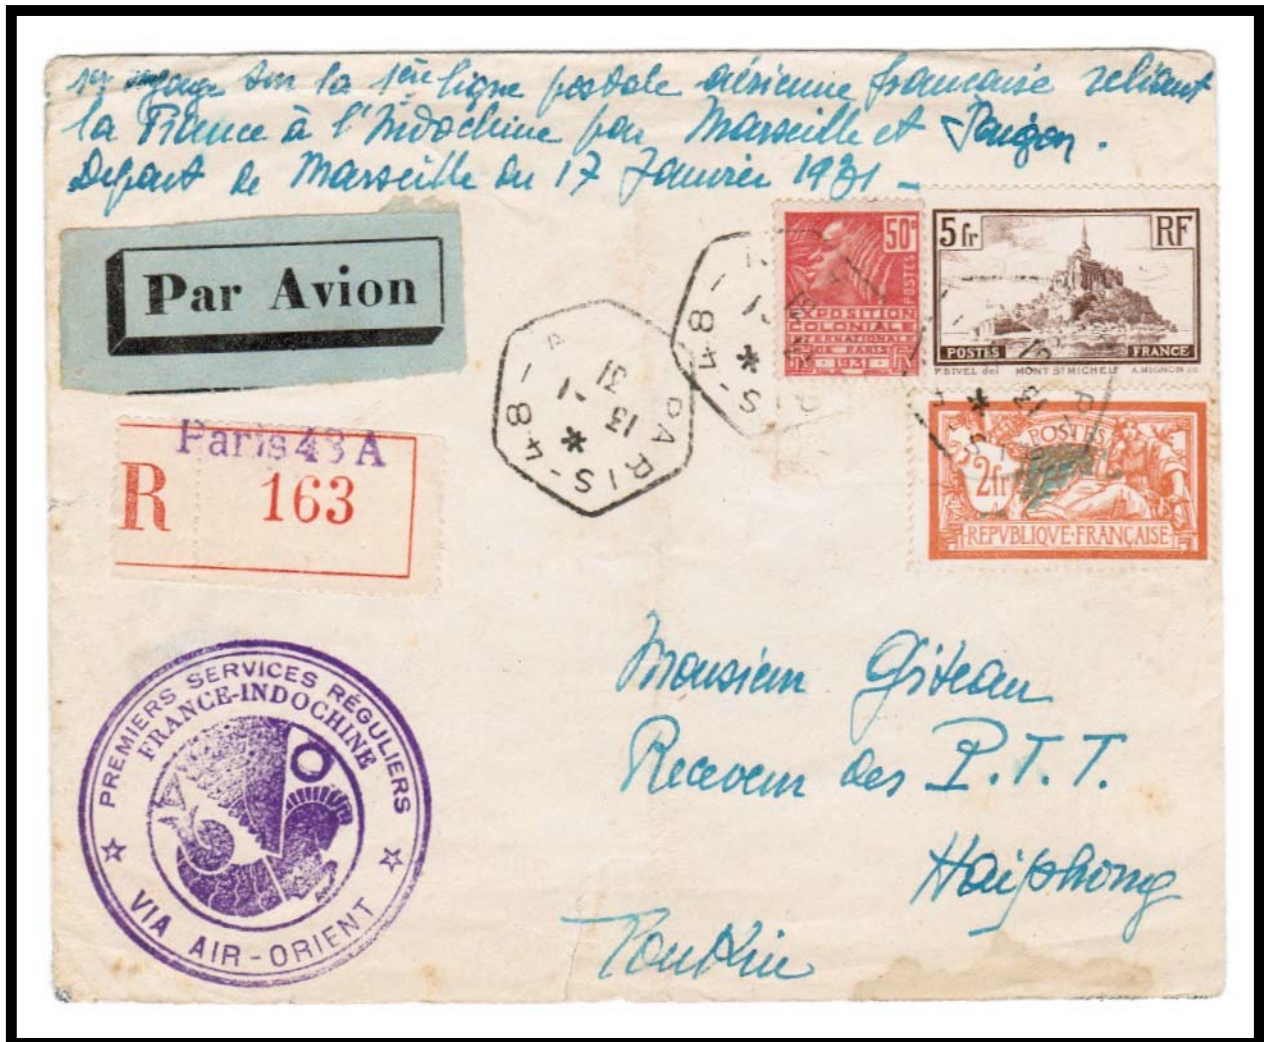 1er voyage sur la 1ère ligne postale aérienne française reliant
la France à l'Indochine par Marseille et Saigon.
Départ de Marseille du 17 Janvier 1931 -
Par Avion
Paris 48 A
R 163
PARIS-48
13 -1
31
*
PARIS-48
*
50c
POSTES
EXPOSITION
COLONIALE
INTERNATIONALE
DE PARIS
1931
5 fr RF
POSTES FRANCE
P.BIVEL del MONT ST MICHEL A.MIGNON sc
POSTES
2fr
REPVBLIQVE FRANÇAISE
PREMIERS SERVICES RÉGULIERS
FRANCE-INDOCHINE
VIA AIR-ORIENT
Monsieur Giteau
Receveur des P.T.T.
Haiphong
Tonkin